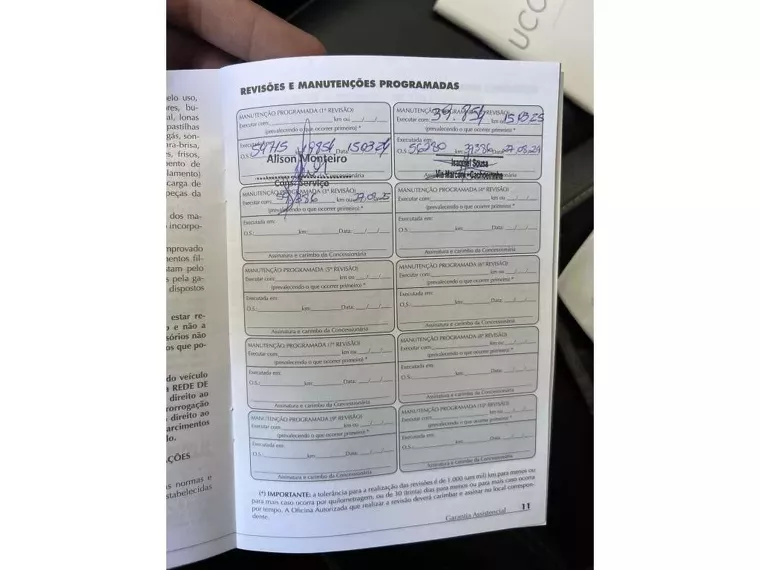 UCO
elo uso,
res, bu-
al, lonas
pastilhas
gás, son-
ra-brisa,
s, frisos,
mento de
lamento)
carga de
peças da
dos ma-
incorpo-
mprovado
mentos fil-
stam pelo
s pela ga-
dispostos
estar re-
o e não a
ssórios não
os que po-
do veículo
REDE DE
direito ao
rorrogação
direito ao
arcimentos
lo.
ÇÕES
as normas e
stabelecidas
REVISÕES E MANUTENÇÕES PROGRAMADAS
MANUTENÇÃO PROGRAMADA (1ª REVISÃO)
Executar com: km ou / /
(prevalecendo o que ocorrer primeiro) *
Executada em:
O.S.: km Data: 150324
Alison Monteiro
Cons. Serviço
MANUTENÇÃO PROGRAMADA REVISÃO)
Executar com: 39.854 km ou 150325
(prevalecendo o que ocorrer primeiro) *
Executada em:
O.S.: 56380 km Data: 27.08.24
Isaquiel Sousa
Via Marconi - Cachoeirinha
MANUTENÇÃO PROGRAMADA (3ª REVISÃO)
Executar com: km ou 27.08.25
(prevalecendo o que ocorrer primeiro) *
Executada em:
O.S.: km Data: / /
Assinatura e carimbo da Concessionária
MANUTENÇÃO PROGRAMADA (4ª REVISÃO)
Executar com: km ou / /
(prevalecendo o que ocorrer primeiro) *
Executada em:
O.S.: km Data: / /
Assinatura e carimbo da Concessionária
MANUTENÇÃO PROGRAMADA (5ª REVISÃO)
Executar com: km ou / /
(prevalecendo o que ocorrer primeiro) *
Executada em:
O.S.: km Data: / /
Assinatura e carimbo da Concessionária
MANUTENÇÃO PROGRAMADA (6ª REVISÃO)
Executar com: km ou / /
(prevalecendo o que ocorrer primeiro) *
Executada em:
O.S.: km Data: / /
Assinatura e carimbo da Concessionária
MANUTENÇÃO PROGRAMADA (7ª REVISÃO)
Executar com: km ou / /
(prevalecendo o que ocorrer primeiro) *
Executada em:
O.S.: km Data: / /
Assinatura e carimbo da Concessionária
MANUTENÇÃO PROGRAMADA (8ª REVISÃO)
Executar com: km ou / /
(prevalecendo o que ocorrer primeiro) *
Executada em:
O.S.: km Data: / /
Assinatura e carimbo da Concessionária
MANUTENÇÃO PROGRAMADA (9ª REVISÃO)
Executar com: km ou / /
(prevalecendo o que ocorrer primeiro) *
Executada em:
O.S.: km Data: / /
Assinatura e carimbo da Concessionária
MANUTENÇÃO PROGRAMADA (10ª REVISÃO)
Executar com: km ou / /
(prevalecendo o que ocorrer primeiro) *
Executada em:
O.S.: km Data: / /
Assinatura e carimbo da Concessionária
(*) IMPORTANTE: a tolerância para a realização das revisões é de 1.000 (um mil) km para menos ou
para mais caso ocorra por quilometragem, ou de 30 (trinta) dias para menos ou para mais caso ocorra
por tempo. A Oficina Autorizada que realizar a revisão deverá carimbar e assinar no local correspon-
dente.
Garantia Assistencial 11